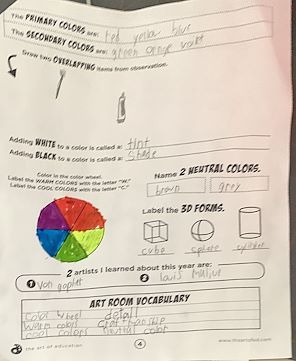 The PRIMARY COLORS are: red yellow blue
The SECONDARY COLORS are: green orange violet
Draw two OVERLAPPING items from observation.
Adding WHITE to a color is called a: tint
Adding BLACK to a color is called a: shade
Color in the color wheel.
Label the WARM COLORS with the letter "W."
Label the COOL COLORS with the letter "C."
Name 2 NEUTRAL COLORS.
brown grey
Label the 3D FORMS.
cube sphere cylinder
2 artists I learned about this year are:
1 Van 2 louis
ART ROOM VOCABULARY
Color wheel detail
Warm colors Craftmanship
cool colors neutral color
the art of education 4 www.theartofed.com